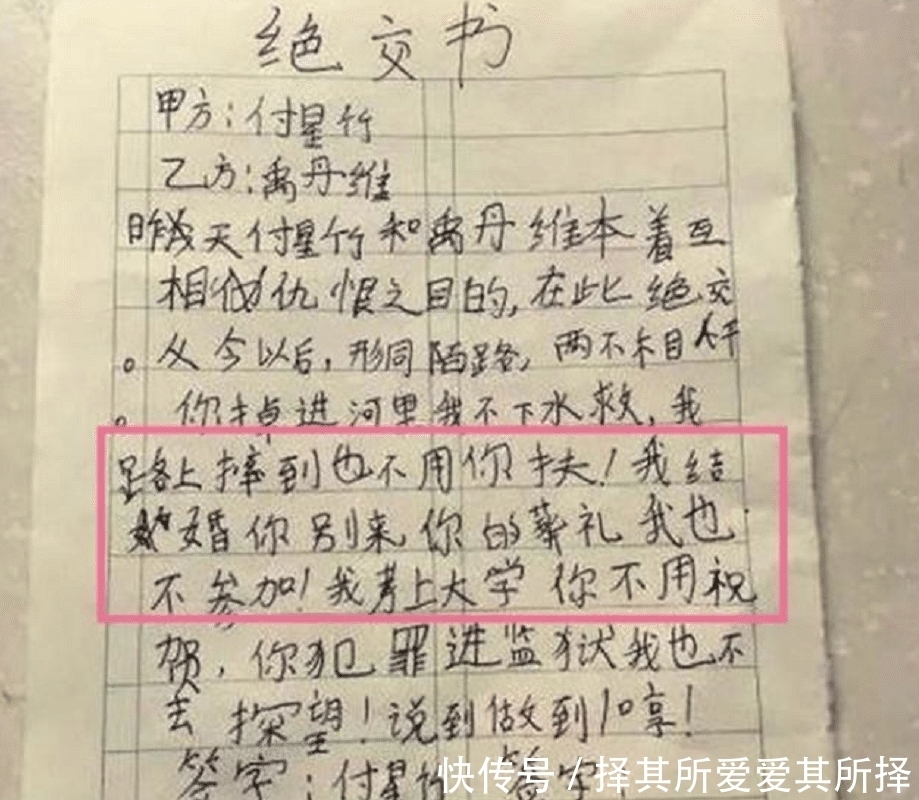 绝交书
甲方:付星竹
乙方:禹丹维
昨天付星竹和禹丹维本着互
相仇恨之目的,在此绝交
。从今以后,形同陌路,两不相干
。你掉进河里我不下水救,我
路上摔到也不用你扶!我结
婚你别来你的葬礼我也
不参加!我考上大学你不用祝
贺,你犯罪进监狱我也不
去探望!说到做到!哼!
签字:付星竹 签字
快传号/择其所爱爱其所择